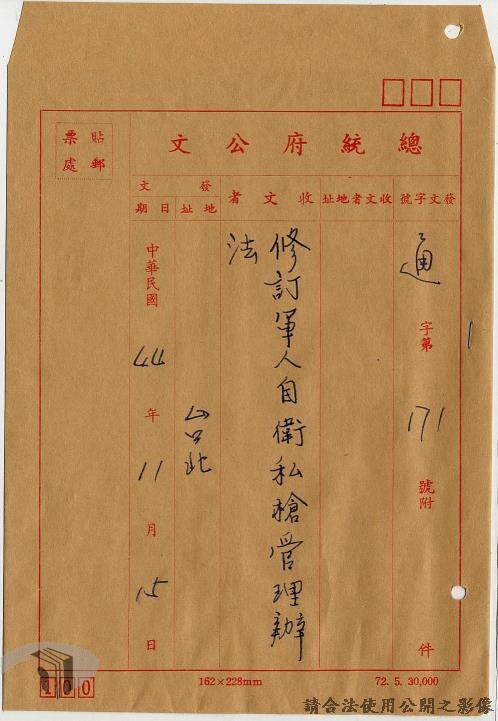 總統府公文
貼郵
票處
發文字號
收文者地址
收文者
發文
地址
日期
通字第171號附件
修訂軍人自衛私槍管理辦
法
台北
中華民國44年11月15日
100
162×228mm
72. 5. 30,000
請合法使用公開之影像